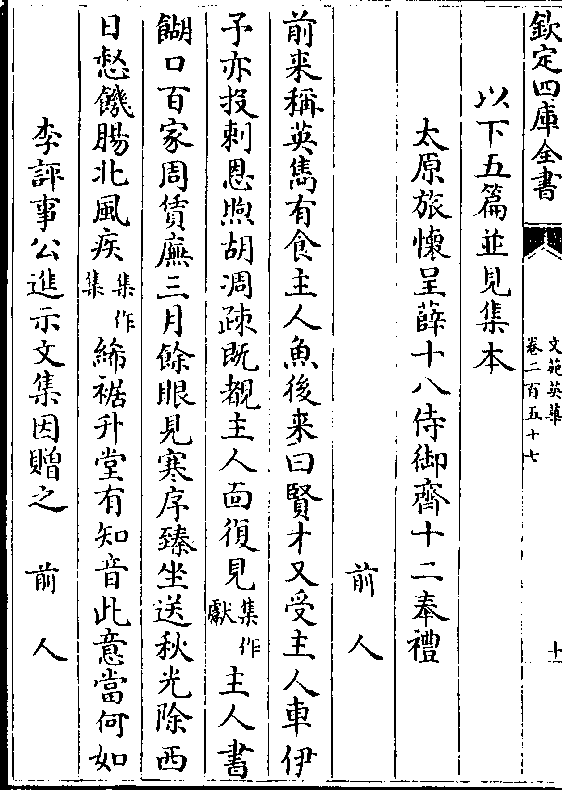 欽定四庫全書
文苑英華
卷二百五十七
十
以下五篇並見集本
太原旅懷呈薛十八侍御齊十二奉禮
前人
前来稱英雋有食主人魚後来曰賢才又受主人車伊
予亦投刺恩煦胡凋疎既覩主人面復見集作獻主人書
餬口百家周賃廡三月餘眼見寒序臻坐送秋光除西
日愁饑腸北風疾集作集絺裾升堂有知音此意當何如
李評事公進示文集因贈之 前人